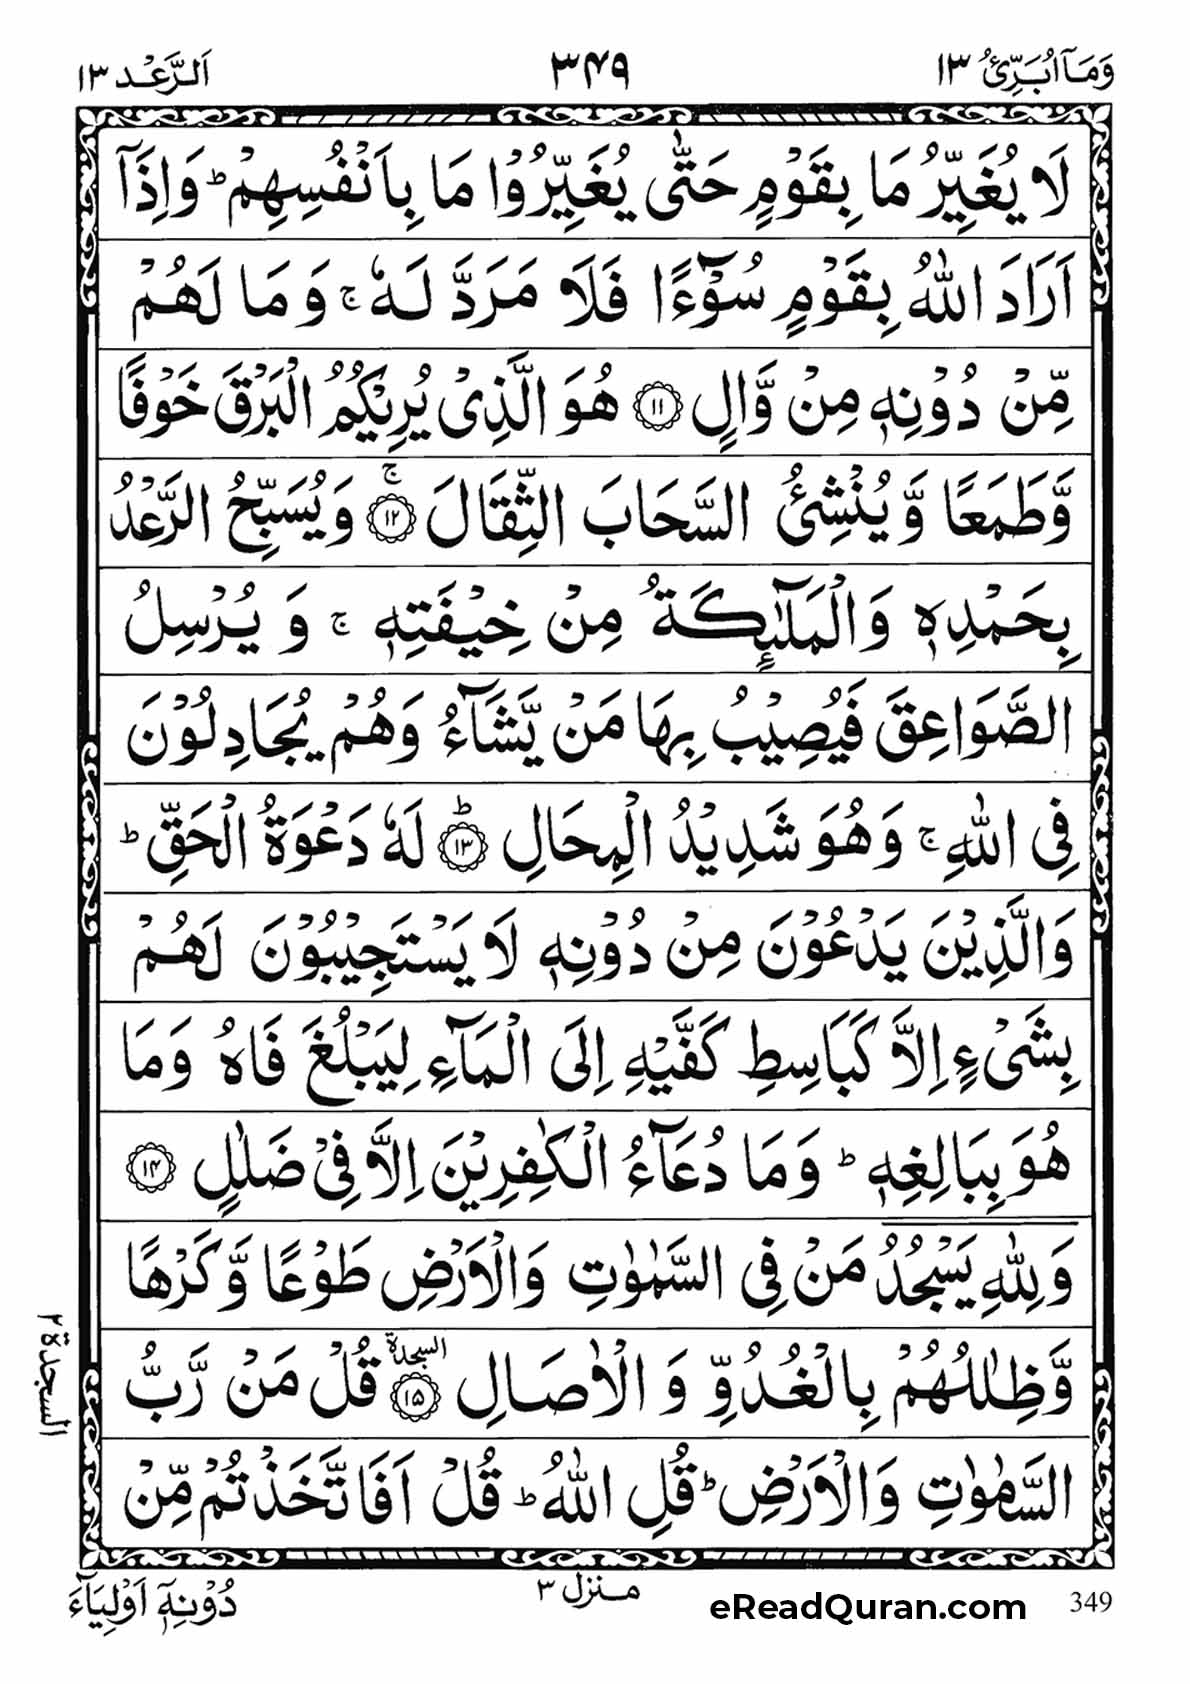 وَمَاۤ اُبَرِّئُ ١٣
٣٤٩
اَلرَّعْد ١٣
لَا يُغَيِّرُ مَا بِقَوْمٍ حَتّٰى يُغَيِّرُوْا مَا بِاَنْفُسِهِمْ ؕ وَاِذَاۤ
اَرَادَ اللّٰهُ بِقَوْمٍ سُوْٓءًا فَلَا مَرَدَّ لَهٗ ۚ وَمَا لَهُمْ
مِّنْ دُوْنِهٖ مِنْ وَّالٍ ﴿١١﴾ هُوَ الَّذِىْ يُرِيْكُمُ الْبَرْقَ خَوْفًا
وَّطَمَعًا وَّيُنْشِئُ السَّحَابَ الثِّقَالَ ۚ ﴿١٢﴾ وَيُسَبِّحُ الرَّعْدُ
بِحَمْدِهٖ وَالْمَلٰٓئِكَةُ مِنْ خِيْفَتِهٖ ۚ وَيُرْسِلُ
الصَّوَاعِقَ فَيُصِيْبُ بِهَا مَنْ يَّشَآءُ وَهُمْ يُجَادِلُوْنَ
فِى اللّٰهِ ۚ وَهُوَ شَدِيْدُ الْمِحَالِ ؕ ﴿١٣﴾ لَهٗ دَعْوَةُ الْحَقِّ ؕ
وَالَّذِيْنَ يَدْعُوْنَ مِنْ دُوْنِهٖ لَا يَسْتَجِيْبُوْنَ لَهُمْ
بِشَىْءٍ اِلَّا كَبَاسِطِ كَفَّيْهِ اِلَى الْمَآءِ لِيَبْلُغَ فَاهُ وَمَا
هُوَ بِبَالِغِهٖ ؕ وَمَا دُعَآءُ الْكٰفِرِيْنَ اِلَّا فِىْ ضَلٰلٍ ﴿١٤﴾
وَلِلّٰهِ يَسْجُدُ مَنْ فِى السَّمٰوٰتِ وَالْاَرْضِ طَوْعًا وَّكَرْهًا
وَّظِلٰلُهُمْ بِالْغُدُوِّ وَالْاٰصَالِ ﴿١٥﴾ السجدة قُلْ مَنْ رَّبُّ
السَّمٰوٰتِ وَالْاَرْضِ ؕ قُلِ اللّٰهُ ؕ قُلْ اَفَاتَّخَذْتُمْ مِّنْ
السجدة ٢
دُوْنِهٖۤ اَوْلِيَآءَ
منزل ٣
eReadQuran.com
349